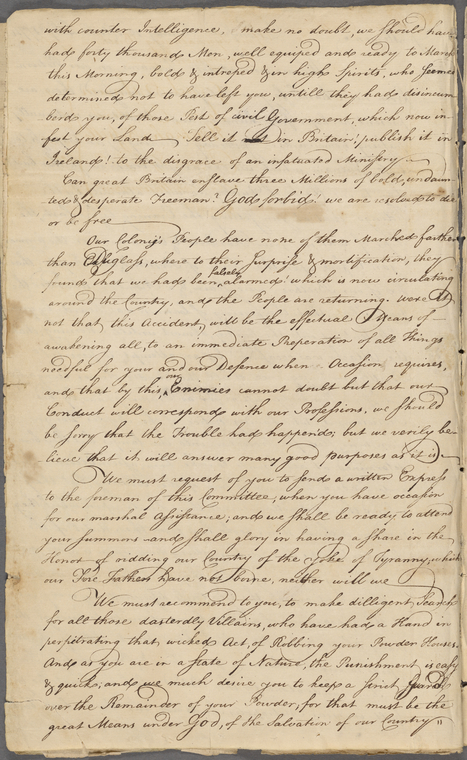 with counter Intelligence, make no doubt, we should have
had forty thousand Men, well equiped and ready to March
this Morning, bold & intreped & in high Spirits, who seemed
determined not to have left you, untill they had disincum
berd you, of those Pest of civil Government, which now in-
fest your Land Tell it in Britain! publish it in
Ireland! to the disgrace of an infatuated Ministery
Can great Britain enslave three Millions of bold, undaun
ted & desperate Freeman? God forbid! we are resolved to die
or be free
Our Colony's People have none of them Marched farther
than Duglass, where to their Surprise & mortification, they
found that we had been falsely alarmed! which is now circulating
around the Country, and the People are returning. Were it
not that this Accident, will be the effectual Means of
awakening all, to an immediate Preperation of all things
needful for your and our Defence when Occasion requires,
and that by this, our Enimies cannot doubt but that our
Conduct will correspond with our Professions, we should
be sorry that the Trouble had happend; but we verily be-
lieve that it will answer many good purposes as it is
We must request of you to send a written Express
to the foreman of this Committee, when you have occasion
for our marshal Assistance; and we shall be ready to attend
your summons and shall glory in having a share in the
Honor of ridding our Country of the yoke of Tyranny, which
our Fore Fathers have not borne, neither will we
We must recommend to you, to make dilligent Search
for all those dasterdly Villains, who have had a Hand in
perpetrating that wicked Act, of Robbing your Powder Houses.
And as you are in a state of Nature, the Punishment is easy
& quick; and we much desire you to keep a strict Guard
over the Remainder of your Powder, for that must be the
great Means under God, of the Salvation of our Country"